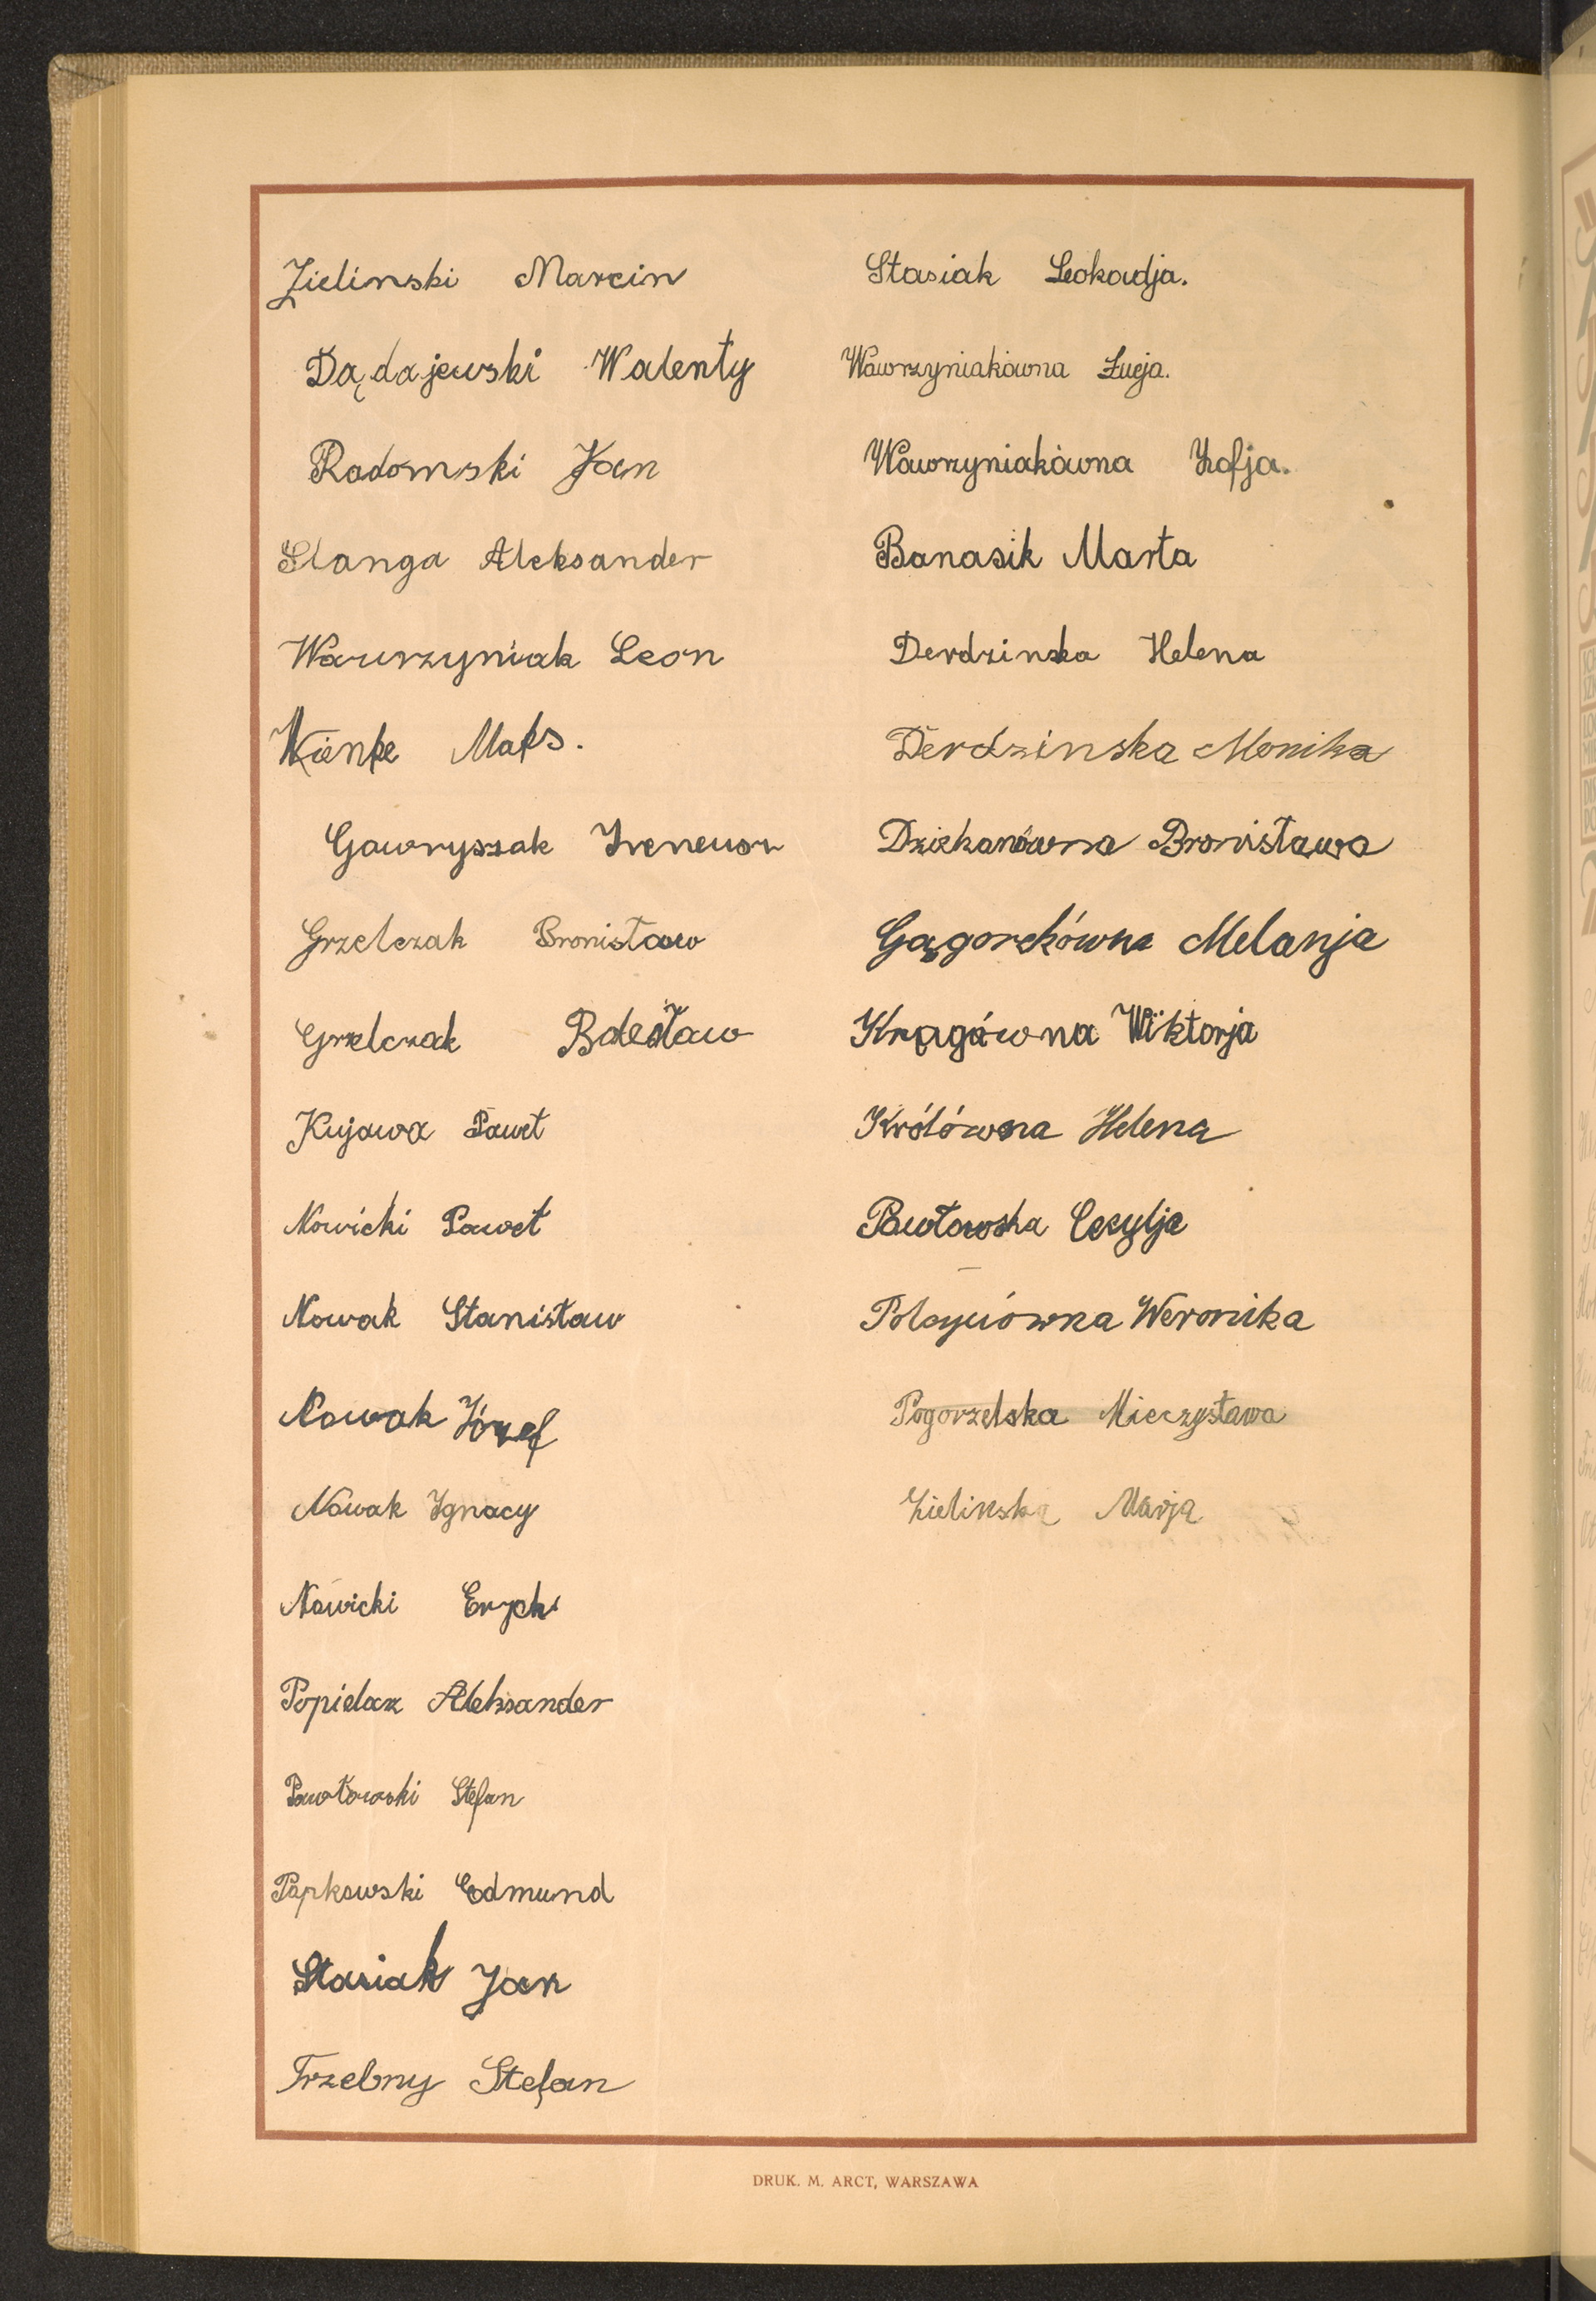 Zielinski Marcin
Dądajewski Walenty
Radomski Jan
Slanga Aleksander
Wawrzyniak Leon
Wienke Maks.
Gawryszak Ireneusz
Grzelczak Bronisław
Grzelczak Bolesław
Kujawa Paweł
Nowicki Paweł
Nowak Stanisław
Nowak Józef
Nowak Ignacy
Nowicki Eryk
Popielarz Aleksander
Pawłowski Stefan
Papkowski Edmund
Stasiak Jan
Trzebny Stefan
Stasiak Leokadja.
Wawrzyniakówna Łucja.
Wawrzyniakówna Zofja.
Banasik Marta
Derdzinska Helena
Derdzinska Monika
Dziekanówna Bronisława
Gągorekówna Melanja
Krągówna Wiktorja
Królówna Helena
Pawłowska Cecylja
Weronika
Pogorzelska Mieczysława
Zielinska Marja
DRUK. M. ARCT, WARSZAWA